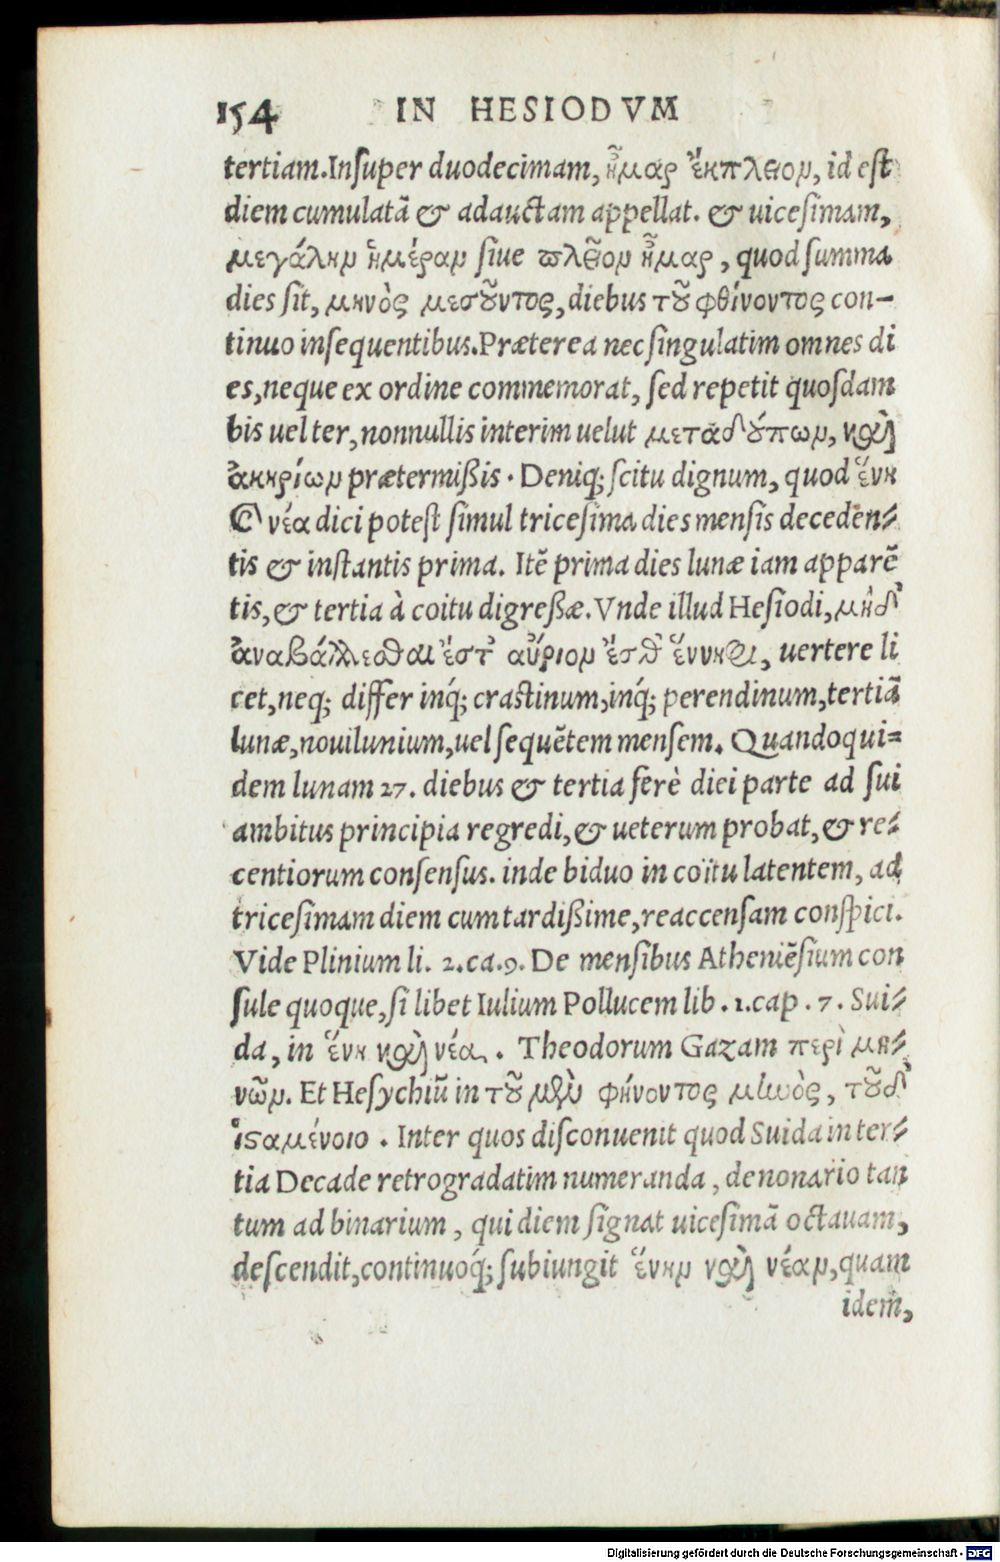 154 IN HESIODVM
tertiam.Insuper duodecimam, ἦμαρ ἔκπλεον, id est
diem cumulatã & adauctam appellat. & uicesimam,
μεγάλην ἡμέραν siue πλεῖον ἦμαρ, quod summa
dies sit, μηνὸς μεσοῦντος, diebus τοῦ φθίνοντος con-
tinuo insequentibus.Præterea nec singulatim omnes di
es,neque ex ordine commemorat, sed repetit quosdam
bis uel ter, nonnullis interim uelut μεταδούπων, καὶ
ἀκηρίων prætermißis. Deniq; scitu dignum, quod ἕνη
& νέα dici potest simul tricesima dies mensis deceden-
tis & instantis prima. Itẽ prima dies lunæ iam apparẽ
tis,& tertia à coitu digreßæ.Vnde illud Hesiodi, μηδ'
ἀναβάλλεσθαι ἔς τ' αὔριον ἔς θ' ἕννηφι, uertere li
cet,neq; differ inq́; crastinum,inq́; perendinum,tertiã
lunæ,nouilunium,uel sequẽtem mensem. Quandoqui-
dem lunam 27. diebus & tertia ferè diei parte ad sui
ambitus principia regredi,& ueterum probat,& re-
centiorum consensus. inde biduo in coïtu latentem, ad
tricesimam diem cum tardißime,reaccensam conspici.
Vide Plinium li. 2.ca.9. De mensibus Atheniẽsium con
sule quoque,si libet Iulium Pollucem lib. 1.cap. 7. Sui-
da, in ἕνη καὶ νέα. Theodorum Gazam περὶ μη-
νῶν. Et Hesychiũ in τοῦ μὲν φήνοντος μηνὸς, τοῦ δ'
ἱσταμένοιο. Inter quos disconuenit quod Suida in ter-
tia Decade retrogradatim numeranda, de nonario tan
tum ad binarium, qui diem signat uicesimã octauam,
descendit,continuoq́; subiungit ἕνην καὶ νέαν,quam
idem,
Digitalisierung gefördert durch die Deutsche Forschungsgemeinschaft - DFG